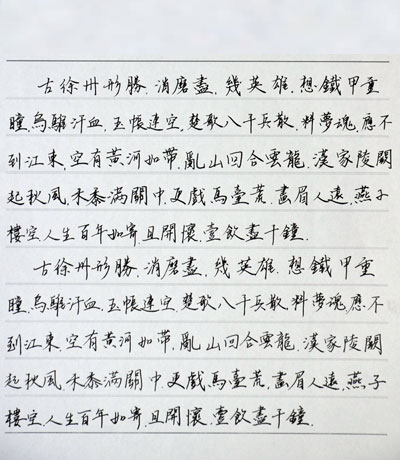 古徐州形勝,消磨盡,幾英雄,想鐵甲重
瞳,烏騅汗血,玉帳連空,楚歌八千兵散,料夢魂,應不
到江東,空有黃河如帶,亂山回合雲龍,漢家陵闕
起秋風,禾黍滿關中,更戲馬臺荒,畫眉人遠,燕子
樓空,人生百年如寄,且開懷,壹飲盡千鐘.
古徐州形勝,消磨盡,幾英雄,想鐵甲重
瞳,烏騅汗血,玉帳連空,楚歌八千兵散,料夢魂,應不
到江東,空有黃河如帶,亂山回合雲龍,漢家陵闕
起秋風,禾黍滿關中,更戲馬臺荒,畫眉人遠,燕子
樓空,人生百年如寄,且開懷,壹飲盡千鐘.